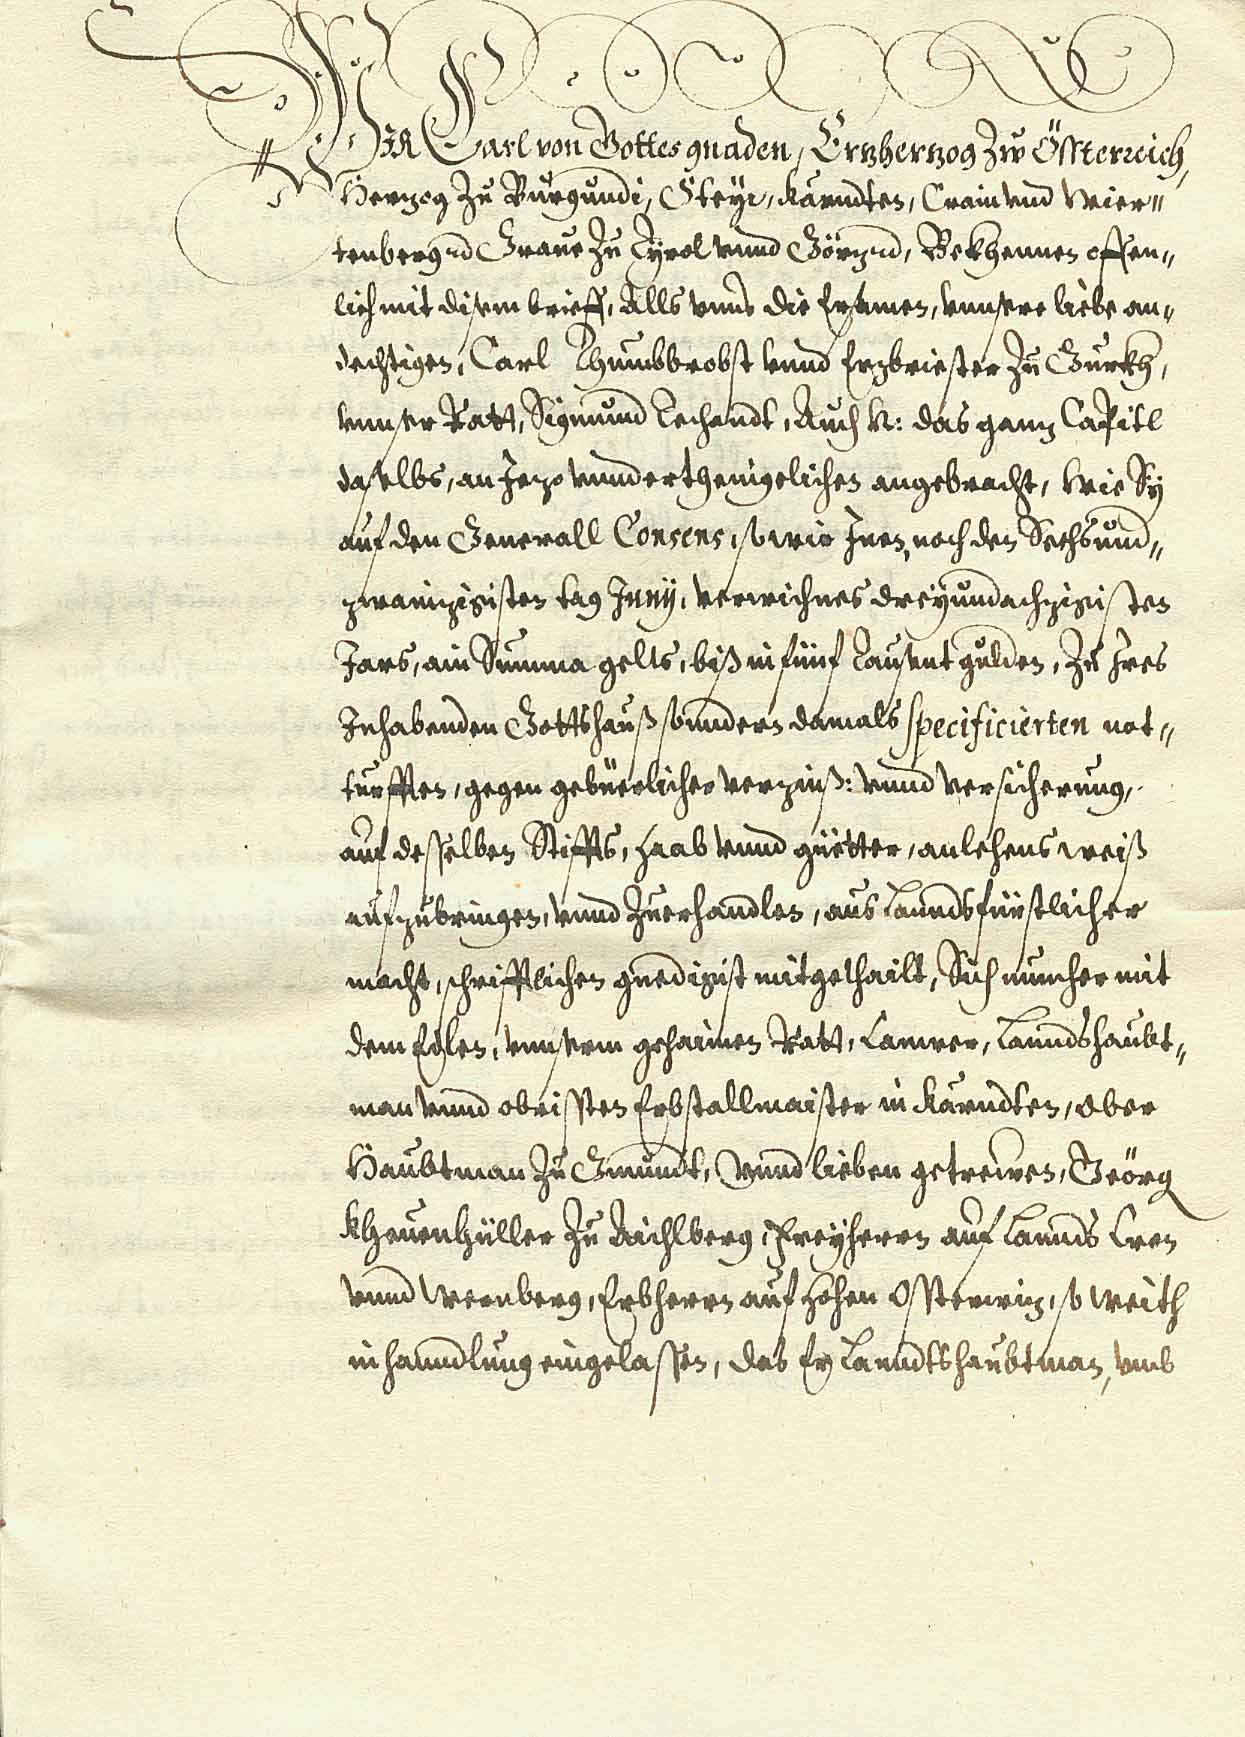 Wir Carl von Gottes gnaden, Ertzhertzog Zw Össterreich,
Hertzog Zu Burgundi, Steyr, Kärndten, Crain vnd Wier=
tenberg etc Graue Zu Tyrol vnnd Görtz etc, Bekhennen offen=
lich mit disem brieff, Alls vnns die Ersamen, vnnsere liebe an=
dechtigen, Carl Thumbbrobst vnnd Ertzbriester Zu Gurkh,
vnnser Ratt, Sigmund Techandt, Auch N: das gantz Capitl
daselbs, an Jezo vnnderthenigelichen angebracht, Wie Sy
auf den Generall Consens, so wir Jnen, noch den Sechsund=
zwainzigisten tag Junij, verwichnes dreyundachzigisten
Jars, ain Summa gelts, biß in fünf Tausent gulden, Zu Jres
Jnhabenden Gottshauß sonndern damals specificierten not=
turfften, gegen gebüerlicher verzinß: vnnd versicherung,
auf desselben Stiffts, Haab vnnd güetter, anlehens weiß
aufzubringen, vnnd Zuerhandlen, aus Lanndsfürstlicher
macht, schrifftlichen gnedigist mitgethailt, Sich nuncher mit
dem Edlen, vnnserm gehaimen Ratt, Camrer, Lanndshaubt=
man vnnd obristen Erbstallmaister in Kärndten, Ober
Haubtman Zu Gmundt, Vnnd lieben getrewen, Geörg
Kheuenhüller Zu Aichlberg, Freyherrn auf Lannds Cron
vnnd Wernberg, Erbherrn auf Hohen Osterwitz, so weith
in hanndlung eingelassen, das Er Lanndtshaubtman, vmb